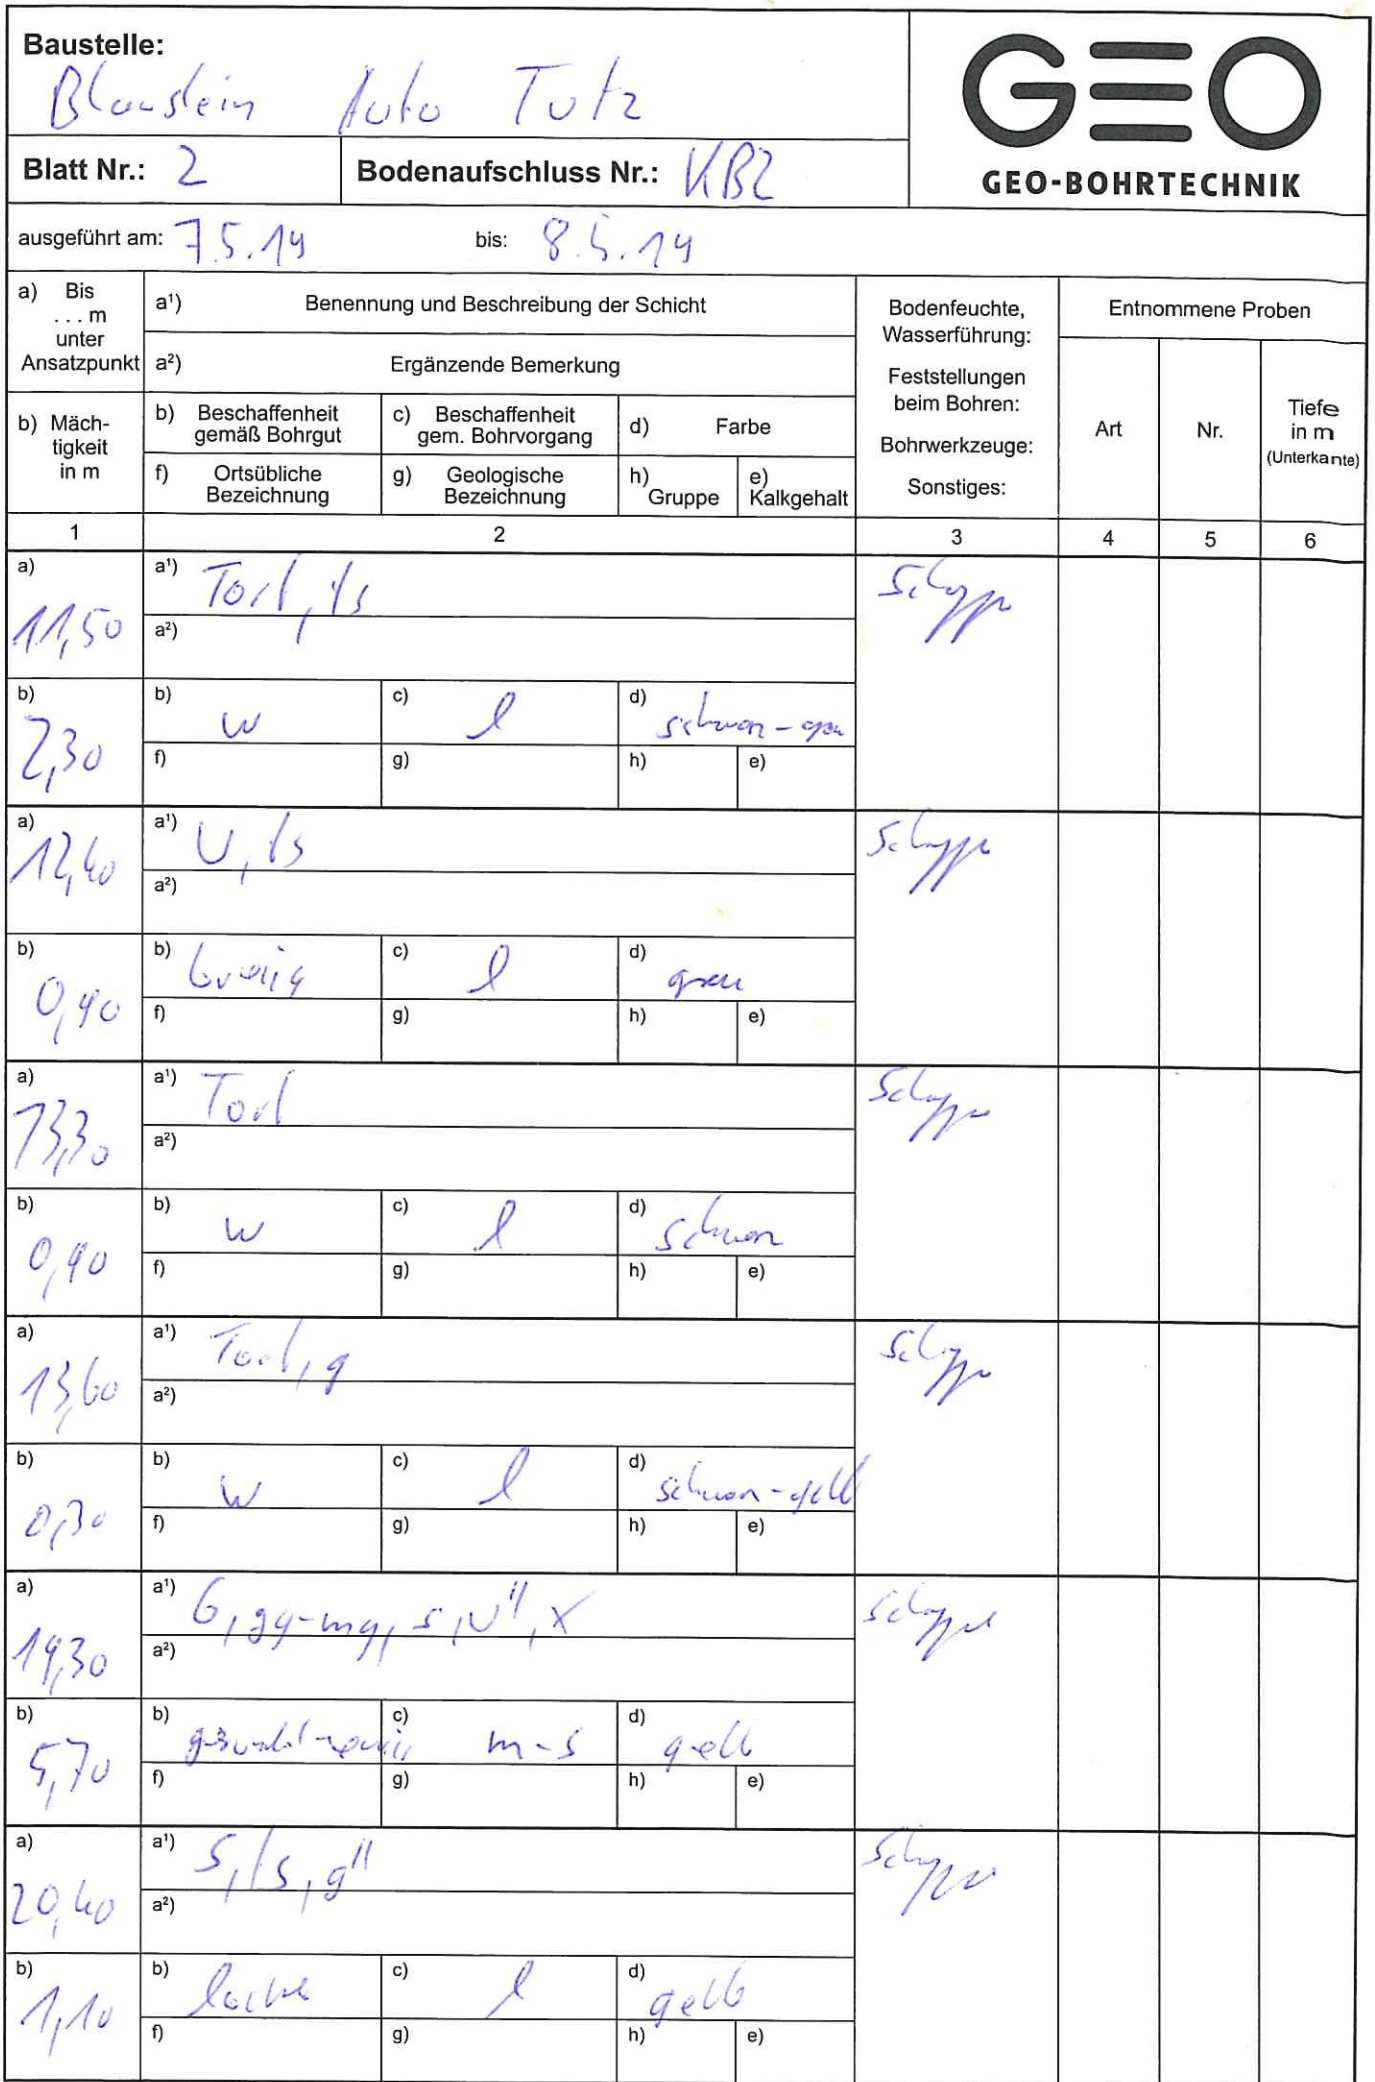 Baustelle:
Blaustein Auto Tutz
GEO
GEO-BOHRTECHNIK
Blatt Nr.: 2
Bodenaufschluss Nr.: KB2
ausgeführt am: 7.5.19 bis: 8.5.19
a) Bis
... m
unter
Ansatzpunkt
b) Mäch-
tigkeit
in m
a¹) Benennung und Beschreibung der Schicht
a²) Ergänzende Bemerkung
b) Beschaffenheit
gemäß Bohrgut
c) Beschaffenheit
gem. Bohrvorgang
d) Farbe
f) Ortsübliche
Bezeichnung
g) Geologische
Bezeichnung
h)
Gruppe
e)
Kalkgehalt
Bodenfeuchte,
Wasserführung:
Feststellungen
beim Bohren:
Bohrwerkzeuge:
Sonstiges:
Entnommene Proben
Art
Nr.
Tiefe
in m
(Unterkante)
1 2 3 4 5 6
a) 11,50
a¹) Torf, fs
Schappe
a²)
b) 2,30
b) w
c) l
d) schwarz-grau
f) g) h) e)
a) 12,40
a¹) U, fs
Schappe
a²)
b) 0,90
b) breiig
c) l
d) grau
f) g) h) e)
a) 13,30
a¹) Torf
Schappe
a²)
b) 0,90
b) w
c) l
d) schwarz
f) g) h) e)
a) 13,60
a¹) Torf, g
Schappe
a²)
b) 0,30
b) w
c) l
d) schwarz-gelb
f) g) h) e)
a) 19,30
a¹) G, gg-mg, s, u", x
Schappe
a²)
b) 5,70
b)
c) m-s
d) gelb
f) g) h) e)
a) 20,40
a¹) S, fs, g"
Schappe
a²)
b) 1,10
b) locker
c) l
d) gelb
f) g) h) e)